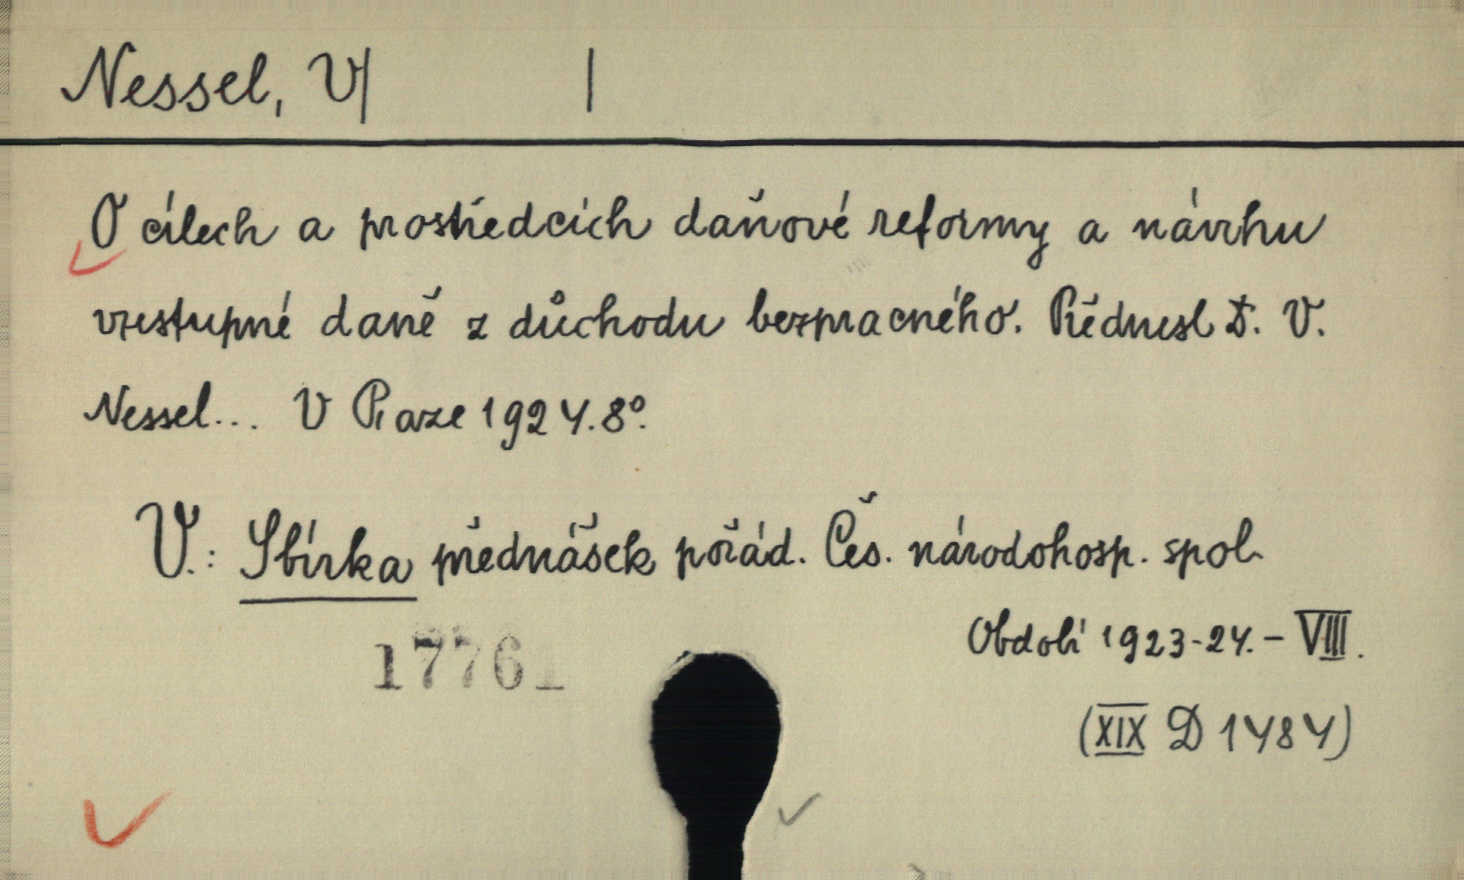 Nessel, V| |
O cílech a prostředcích daňové reformy a návrhu
vzestupné daně z důchodu bezpracného. Přednesl D. V.
Nessel... V Praze 1924. 8º.
V.: Sbírka přednášek pořád. Čes. národohosp. spol.
Období 1923-24. - VIII.
17761
(XIX D 1484)